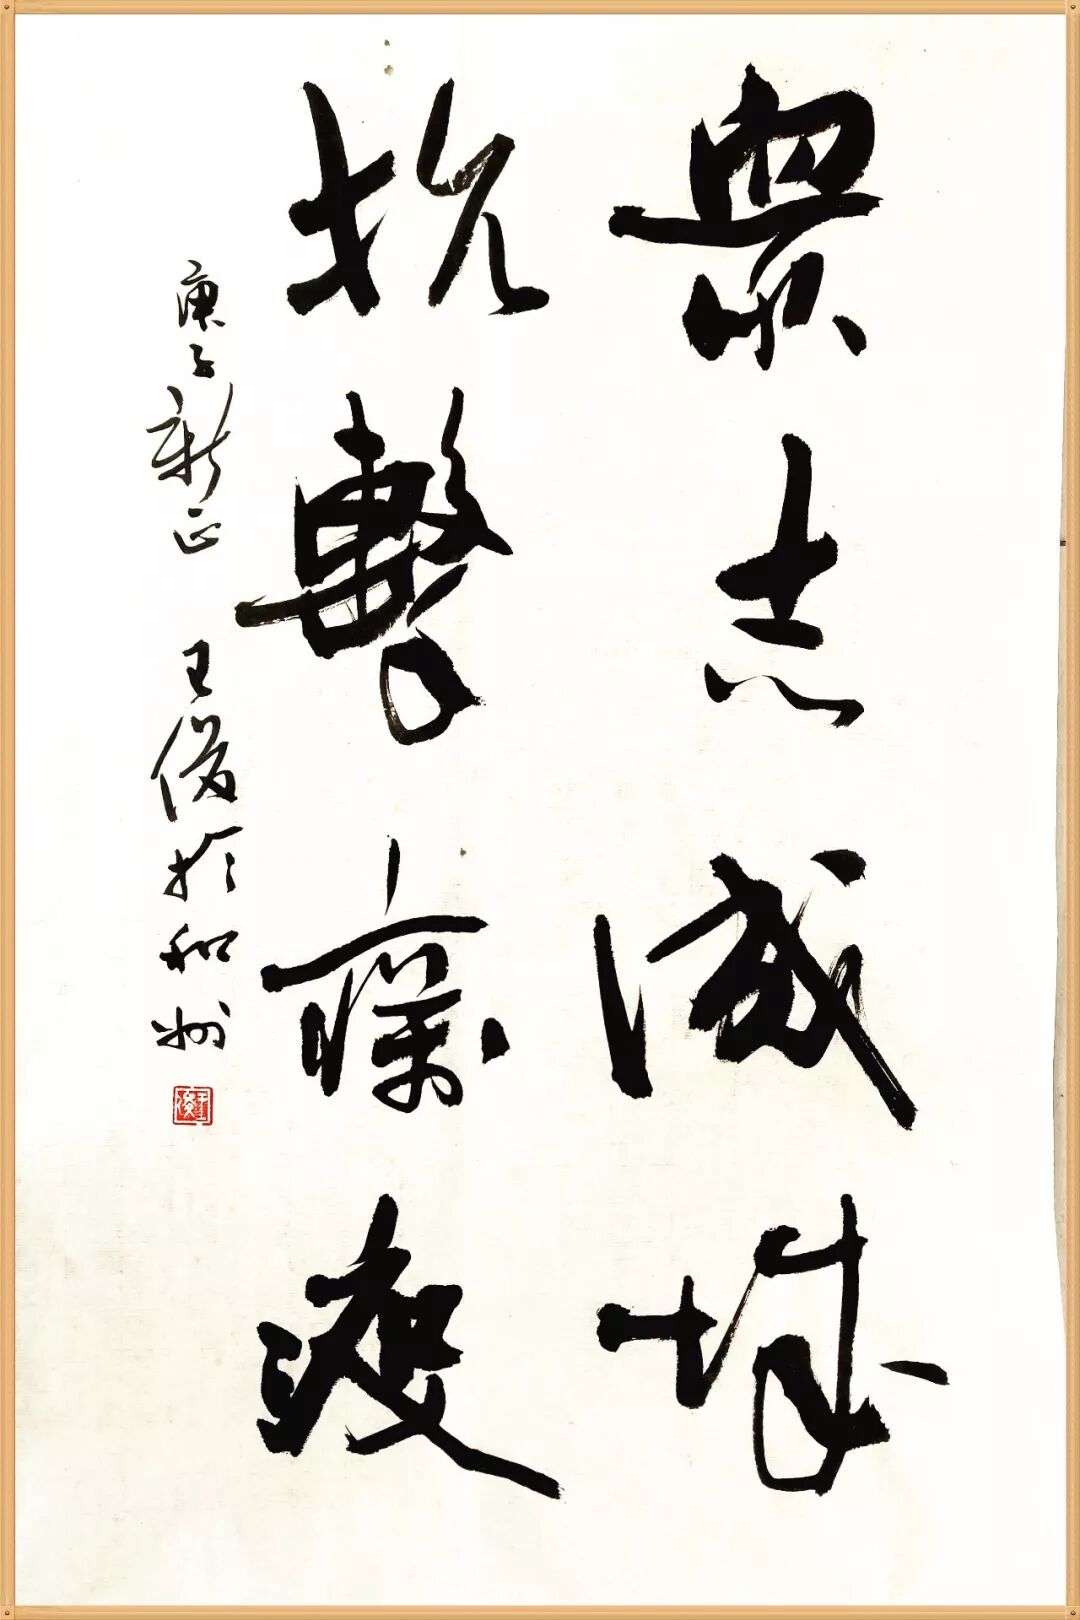 眾志成城
抗擊癘疫
庚子新正 王俊於和州
王俊